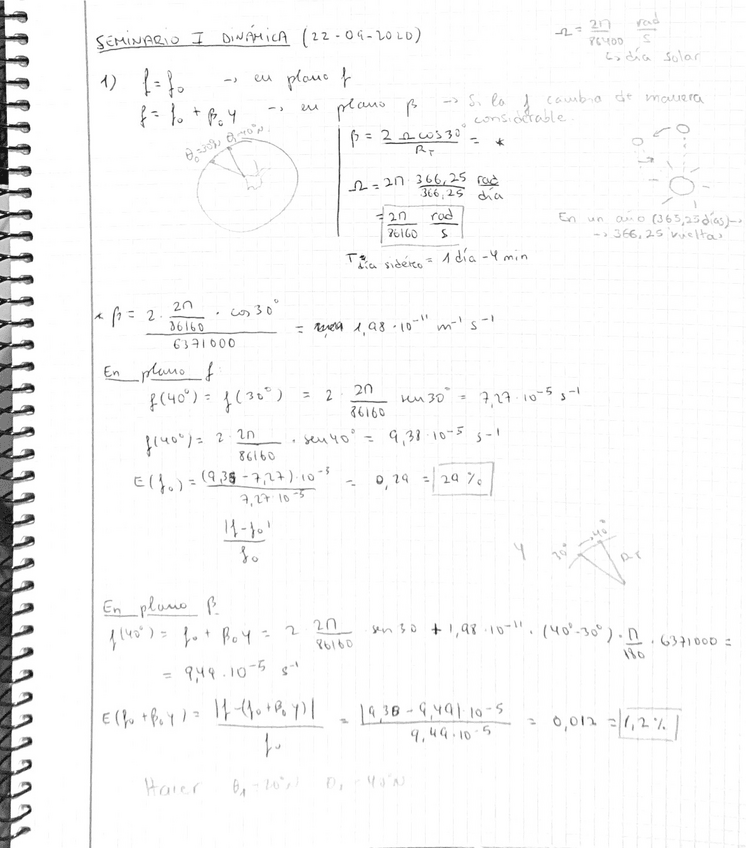 SEMINARIO I DINÁMICA (22-09-2020)
Ω = 2π/86400 rad/s
↳ día solar
1) f = f₀ → en plano f
f = f₀ + β₀y → en plano β → Si la f cambia de manera
considerable.
θ₀=30°N θ₁=40°N
β = 2 Ω cos30°/R_T = *
Ω = 2π · 366,25/366,25 rad/día
= 2π/86160 rad/s
T día sidéreo = 1 día - 4 min
En un año (365,25 días) →
→ 366,25 vueltas
* β = (2 · 2π/86160 · cos30°)/6371000 = 1,98 · 10⁻¹¹ m⁻¹ s⁻¹
En plano f:
f(40°) = f(30°) = 2 · 2π/86160 sen30° = 7,27 · 10⁻⁵ s⁻¹
f(40°) = 2 · 2π/86160 · sen40° = 9,38 · 10⁻⁵ s⁻¹
E(f₀) = (9,38 - 7,27) · 10⁻⁵/7,27 · 10⁻⁵ = 0,29 = 29 %
|f - f₀|/f₀
y 30° 40° R_T
En plano β
f(40°) = f₀ + β₀y = 2 2π/86160 · sen 30 + 1,98 · 10⁻¹¹ · (40° - 30°) · π/180 · 6371000 =
= 9,49 · 10⁻⁵ s⁻¹
E(f₀ + β₀y) = |f - (f₀ + β₀y)|/f₀ = |9,38 - 9,49| · 10⁻⁵/9,49 · 10⁻⁵ = 0,012 = 1,2 %
Hacer